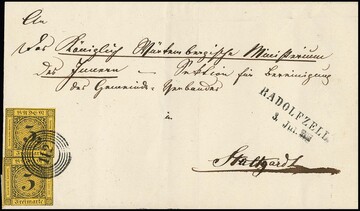 An
Das Königlich Württembergische Ministerium
des Innern — Section für Bereinigung
der Gemeinde-Verbände
in
Stuttgart
RADOLFZELL
3 Jul.
BADEN
3
Freimarke
3
Freimarke
112